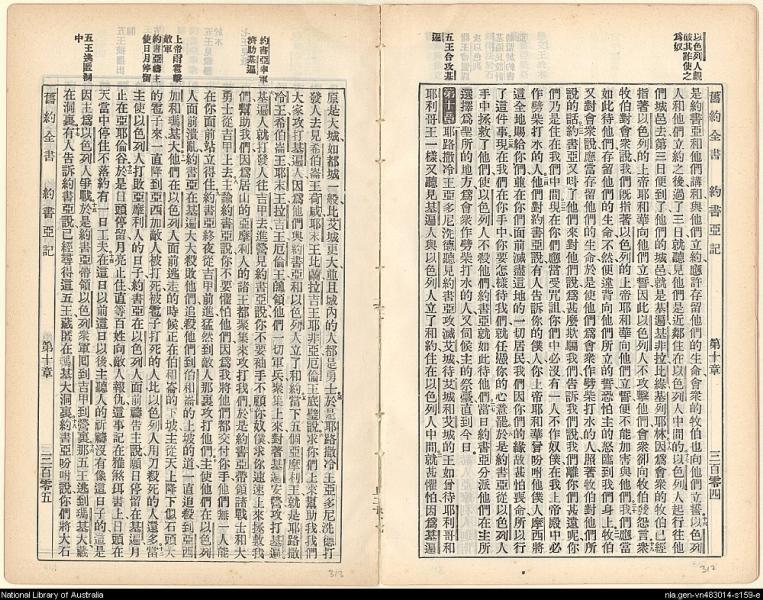 以色列人覷
破其詐使之
爲奴
五王合攻基
遍
舊約全書 約書亞記 第十章 三百零四
是約書亞和他們講和與他們立約應許存留他們的生命會衆的牧伯也向他們立誓○以色列
人和他們立約之後過了三日就聽見他們是近鄰住在以色列人中間的以色列人起行往他
們城邑去第三日便到了他們的城邑就是基遍基非拉比綠基列耶林因爲會衆的牧伯已經
指著以色列的上帝耶和華向他們立誓因此以色列人不攻擊他們會衆卻向牧伯發怨言衆
牧伯對會衆說我們旣指著以色列的上帝耶和華向他們立誓便不能加害與他們我們應當
如此待他們存留他們的生命不然便違背向他們所立的誓恐怕主的怒臨到我們身上牧伯
又對會衆說應當存留他們的生命於是使他們爲會衆作劈柴打水的人照著牧伯對他們所
說的話約書亞又呌了他們來對他們說爲甚麼欺騙我們告訴我們說我們離你們甚遠呢你
們乃是住在我們中間現在你們應當受咒詛你們中必沒有一人不作奴僕在我上帝殿中必
作劈柴打水的人他們對約書亞說有人告訴你的僕人你上帝耶和華曾吩咐他僕人摩西將
這全地賜給你們並在你們面前滅盡這地的一切居民我們因你們的緣故甚怕喪命所以行
了這件事現在我們在你手中你要怎樣待我們就任憑你的心意罷於是約書亞從以色列人
手中拯救了他們使以色列人不殺他們約書亞就如此待他們當日約書亞分派他們在主所
選擇爲聖所的地方爲會衆作劈柴打水的人又伺候主的祭臺直到今日
第十章 耶路撒冷王亞多尼洗德聽見約書亞攻滅艾城待艾城和艾城的王如曾待耶利哥和
耶利哥王一樣又聽見基遍人與以色列人立了和約住在以色列人中間就甚懼怕因爲基遍
312
約書亞率軍
濟助基遍
上帝雨雹擊
敵軍
約書亞禱主
使日月停留
五王逃匿洞
中
原是大城如都城一般比艾城更大並且城內的人都是勇士於是耶路撒冷王亞多尼洗德打
發人去見希伯崙王荷咸耶末王比蘭拉吉王耶非亞厄倫王底璧說求你們上來幫助我我們
大家攻打基遍人因爲他們與約書亞和以色列人立了和約當下五個亞摩利王就是耶路撒
冷王希伯崙王耶末王拉吉王厄倫王帥領他們一切軍兵聚集上來對著基遍安營攻打基遍
基遍人就打發人往吉甲去進營見約書亞說你不要袖手不顧你奴僕求你速速上來拯救我
們幫助我們因爲居山的亞摩利人的諸王都聚集來攻打我們於是約書亞帶領諸戰士和大
勇士從吉甲上去主諭約書亞說你不要懼怕他們因爲我將他們都交付你手他們無一人能
在你面前站立得住約書亞終夜從吉甲前進猛然到敵人那裏攻打他們主使他們在以色列
人面前潰亂約書亞在基遍大大殺敗他們追殺他們到伯和崙的上坡的道一直追殺到亞西
加和瑪基大他們在以色列人面前逃走的時候正在伯和崙的下坡主從天上降下似石頭大
的雹子來一直降到亞西加敵人被打死被雹子打死的人比以色列人用刀殺死的人還多當
主使以色列人打敗亞摩利人的日子約書亞在以色列人面前禱告主說願日停留在基遍月
止在亞耶倫谷於是日頭停留月亮止住直等百姓向敵人報仇這事記在雅煞珥書上日頭在
天當中停住不落約有一日工夫在這日以前這日以後主聽人的祈禱沒有像這日子的這是
因主爲以色列人爭戰於是約書亞帶領以色列衆軍囘到吉甲到營裏那五王逃到瑪基大藏
在洞裏有人告訴約書亞說已經尋得這五王藏匿在瑪基大洞裏約書亞吩咐說你們將大石
舊約全書 約書亞記 第十章 三百零五
313
National Library of Australia
nla.gen-vn483014-s159-e